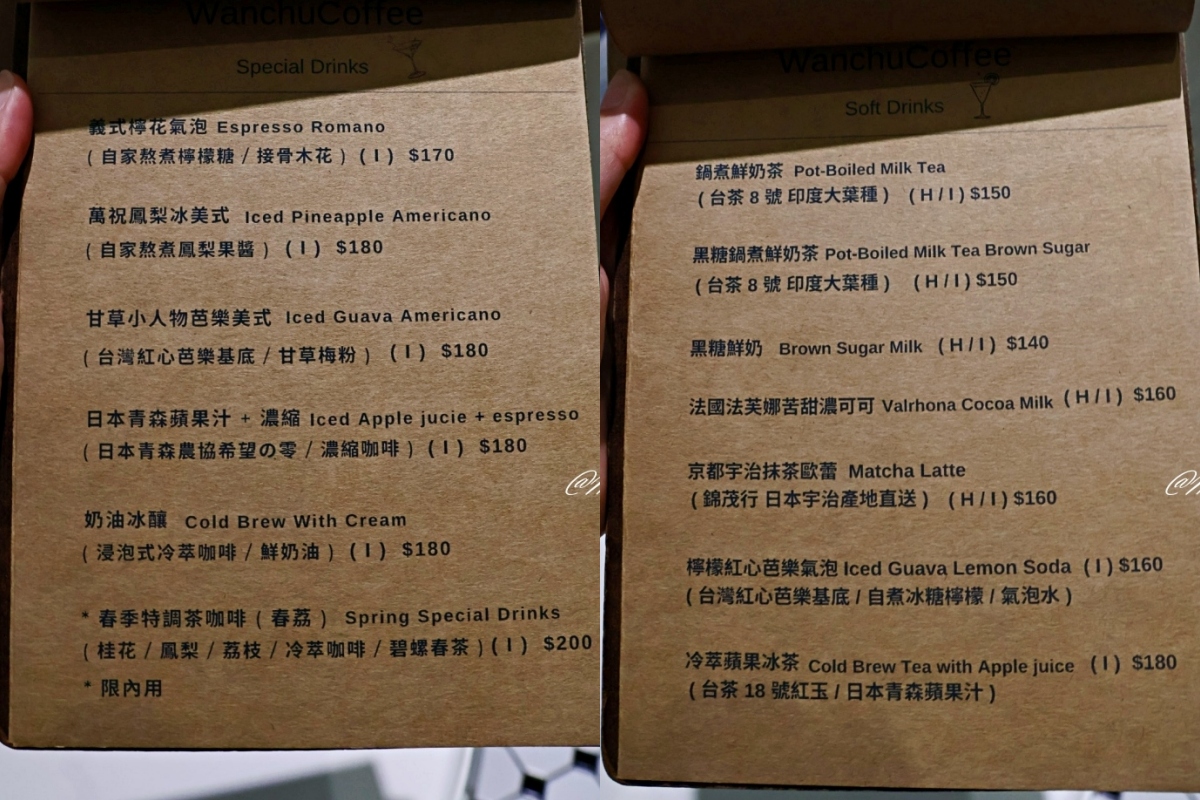 WanchuCoffee
Special Drinks
義式檸花氣泡 Espresso Romano
( 自家熬煮檸檬糖 / 接骨木花 ) ( I ) $170
萬祝鳳梨冰美式 Iced Pineapple Americano
( 自家熬煮鳳梨果醬 ) ( I ) $180
甘草小人物芭樂美式 Iced Guava Americano
( 台灣紅心芭樂基底 / 甘草梅粉 ) ( I ) $180
日本青森蘋果汁 + 濃縮 Iced Apple jucie + espresso
( 日本青森農協希望の零 / 濃縮咖啡 ) ( I ) $180
奶油冰釀 Cold Brew With Cream
( 浸泡式冷萃咖啡 / 鮮奶油 ) ( I ) $180
* 春季特調茶咖啡 ( 春荔 ) Spring Special Drinks
( 桂花 / 鳳梨 / 荔枝 / 冷萃咖啡 / 碧螺春茶 ) ( I ) $200
* 限內用
WanchuCoffee
Soft Drinks
鍋煮鮮奶茶 Pot-Boiled Milk Tea
( 台茶 8 號 印度大葉種 ) ( H / I ) $150
黑糖鍋煮鮮奶茶 Pot-Boiled Milk Tea Brown Sugar
( 台茶 8 號 印度大葉種 ) ( H / I ) $150
黑糖鮮奶 Brown Sugar Milk ( H / I ) $140
法國法芙娜苦甜濃可可 Valrhona Cocoa Milk ( H / I ) $160
京都宇治抹茶歐蕾 Matcha Latte
( 錦茂行 日本宇治產地直送 ) ( H / I ) $160
檸檬紅心芭樂氣泡 Iced Guava Lemon Soda ( I ) $160
( 台灣紅心芭樂基底 / 自煮冰糖檸檬 / 氣泡水 )
冷萃蘋果冰茶 Cold Brew Tea with Apple juice ( I ) $180
( 台茶 18 號紅玉 / 日本青森蘋果汁 )